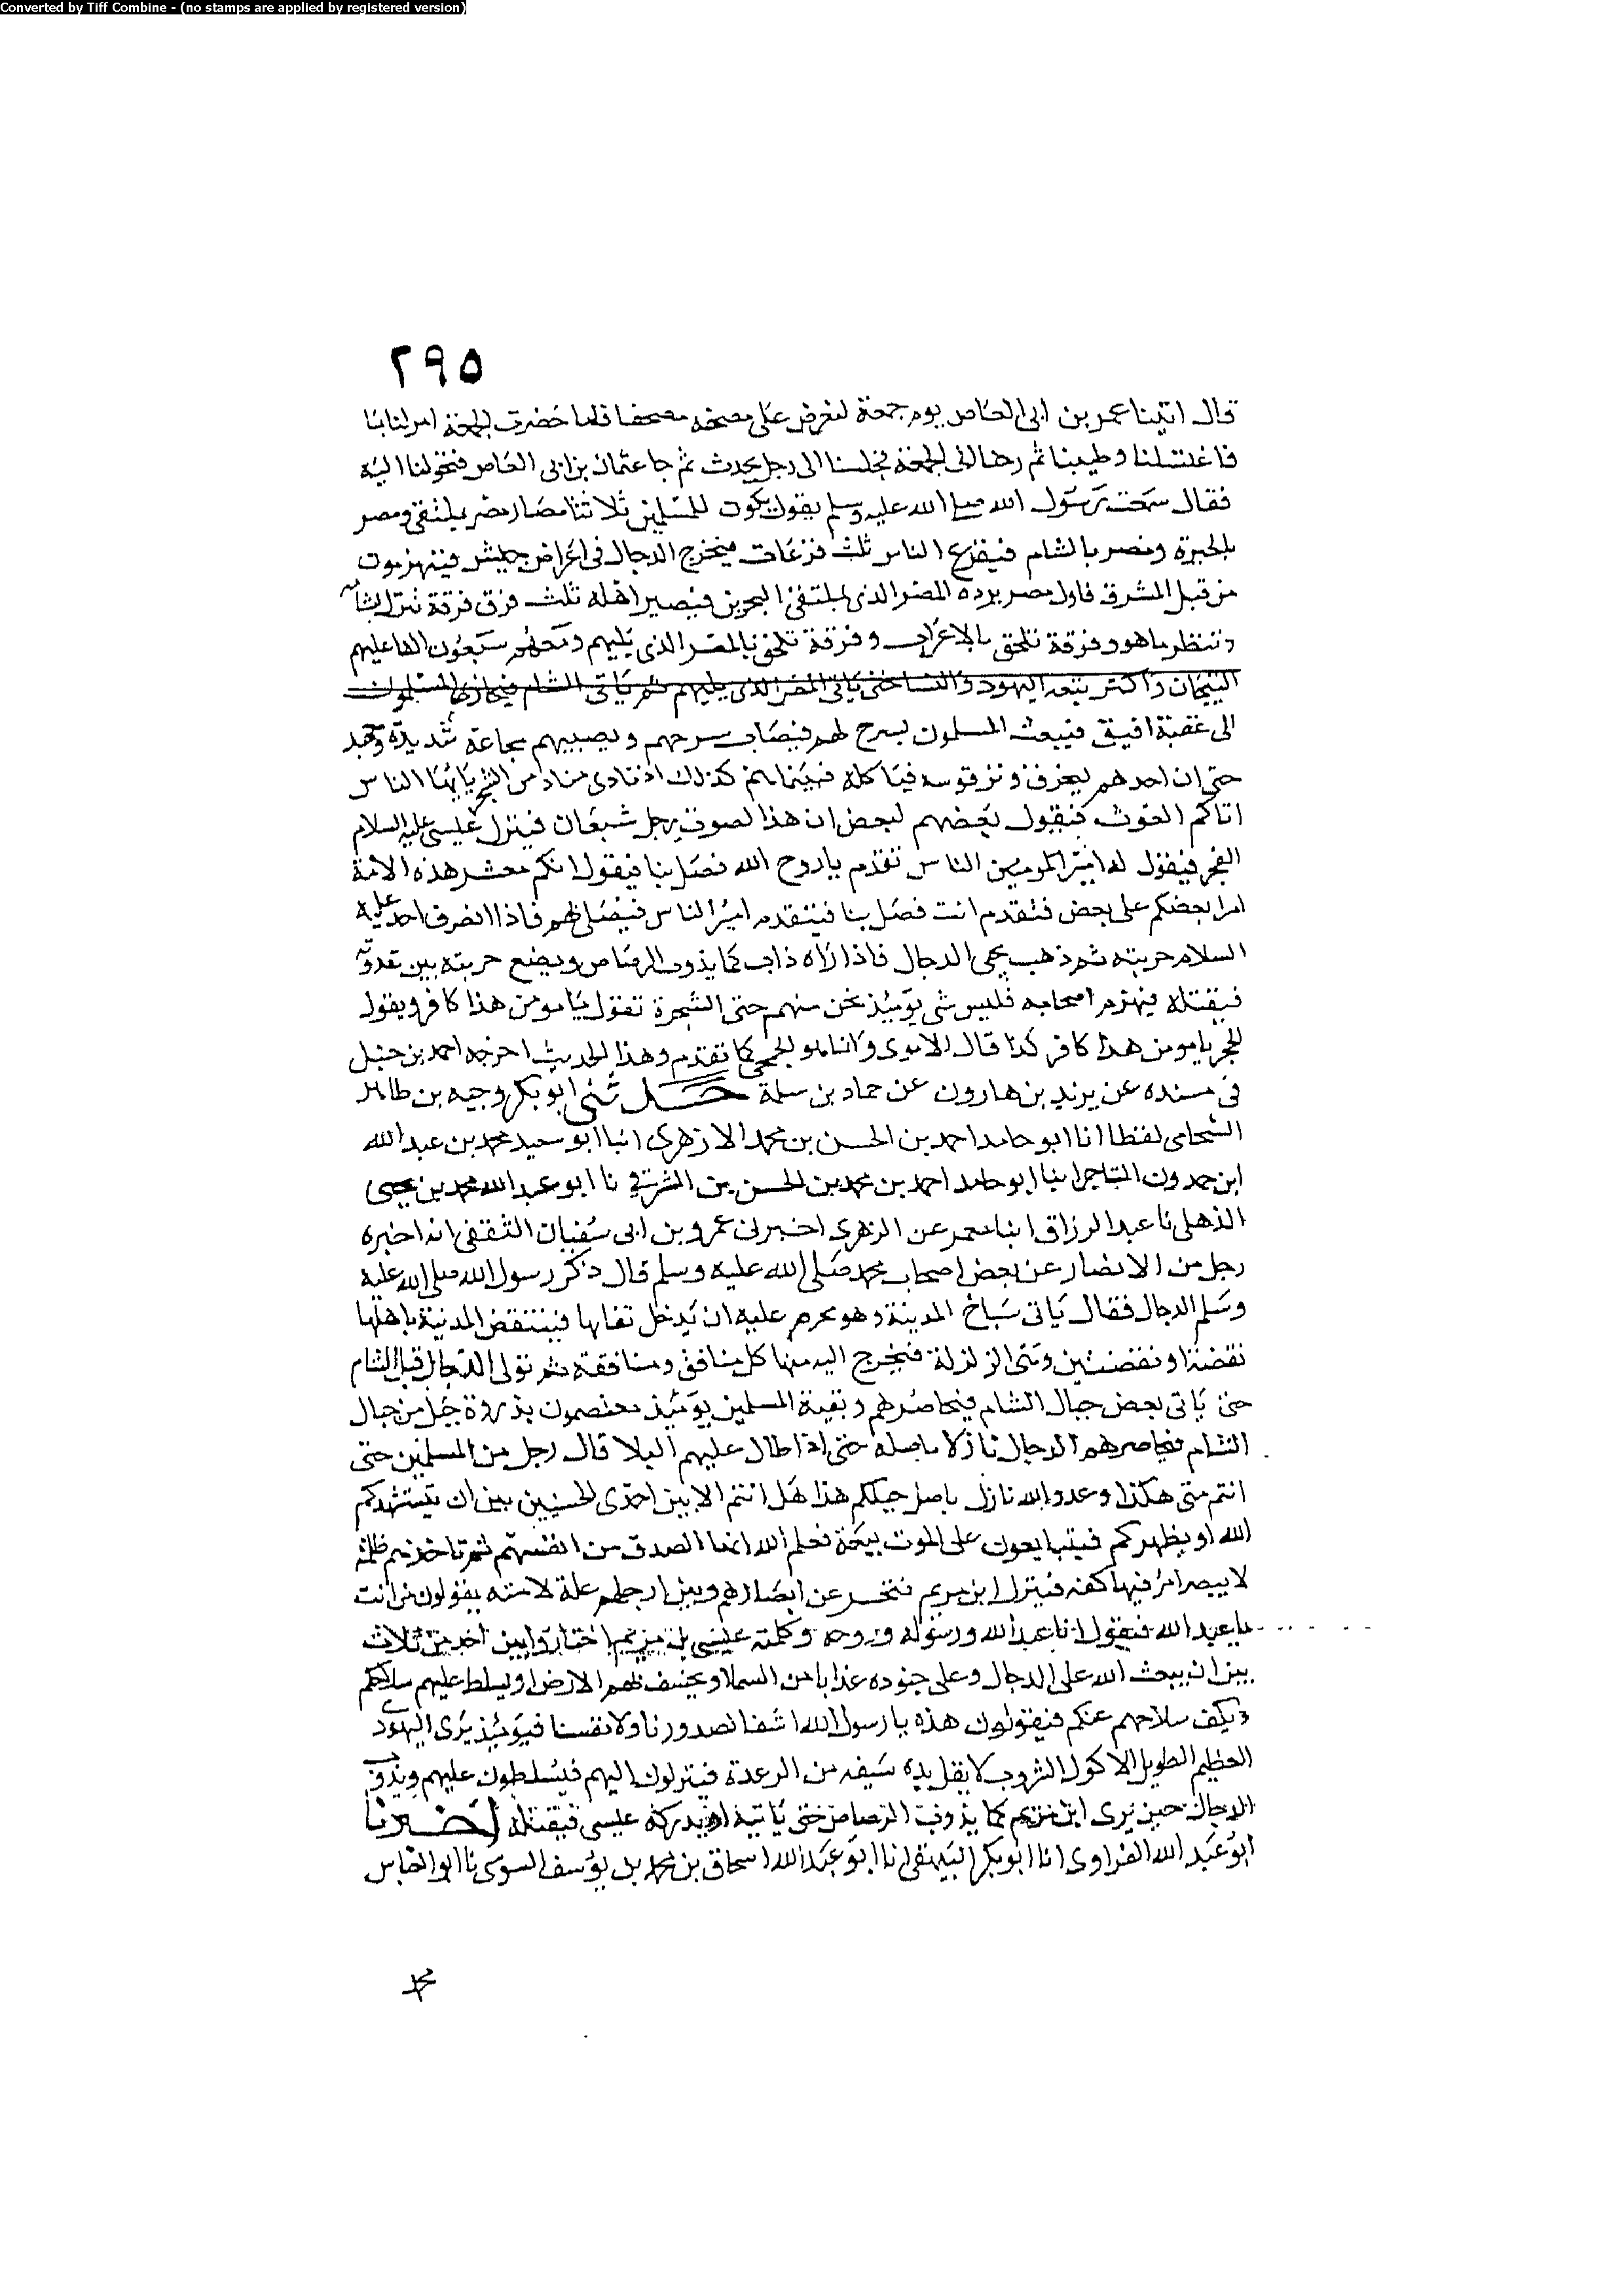 Converted by Tiff Combine - (no stamps are applied by registered version)
٢٩٥
قال اتينا عمر بن ابى العاص يوم جمعة لنعرض على مصحفه مصحفا فلما حضرت الجمعة امر لنا بنا
فاغتسلنا وطيبنا ثم رحنا الى الجمعة فجلسنا الى رجل يحدث ثم جا عثمان بن ابى العاص فتحولنا اليه
فقال سمعت رسول الله صلى الله عليه وسلم يقول يكون للمسلمين ثلاثة امصار مصر بملتقى ومصر
بالحيرة ومصر بالشام فيفزع الناس ثلث فزعات فيخرج الدجال فى اعراض جيش فينهزمون
من قبل المشرق فاول مصر يرده المصر الذى بملتقى البحرين فيصير اهله ثلث فرق فرقة تنزل الشام
وتنظر ما هو وفرقة تلحق بالاعراب وفرقة تلحق بالمصر الذى يليهم ومعهم سبعون الفا عليهم
التيجان واكثر تبعه اليهود والنسا حتى ياتى المصر الذى يليهم ثم ياتى الشام فينحاز المسلمون
الى عقبة افيق فيبعث المسلمون بسرح لهم فيصاب سرحهم ويصيبهم مجاعة شديدة وجهد
حتى ان احدهم ليحرق وتر قوسه فياكله فبينما هم كذلك اذ نادى مناد من الشجر يا ايها الناس
اتاكم الغوث فيقول بعضهم لبعض ان هذا لصوت رجل شبعان فينزل عيسى عليه السلام
الفجر فيقول له امير المومنين الناس تقدم يا روح الله فصل بنا فيقول انكم معشر هذه الامة
امرا بعضكم على بعض فتقدم انت فصل بنا فيتقدم امير الناس فيصلى بهم فاذا انصرف اخذ عليه
السلام حربته ثم ذهب نحو الدجال فاذا راه ذاب كما يذوب الرصاص ويضع حربته بين ثندوته
فيقتله فينهزم اصحابه فليس شى يومئذ يجن منهم حتى الشجرة تقول يا مومن هذا كافر ويقول
الحجر يا مومن هذا كافر كذا قال الاموى وانما هو الجمحى كما تقدم وهذا الحديث اخرجه احمد بن حنبل
فى مسنده عن يزيد بن هارون عن حماد بن سلمة حدثنى ابو بكر وجيه بن طاهر
الشحامى لفظا انا ابو حامد احمد بن الحسن بن محمد الازهرى انبا ابو سعيد محمد بن عبد الله
ابن حمدون التاجر انبا ابو حامد احمد بن محمد بن الحسن بن الشرقى نا ابو عبد الله محمد بن يحيى
الذهلى نا عبد الرزاق انبا معمر عن الزهرى اخبرنى عمرو بن ابى سفيان الثقفى انه اخبره
رجل من الانصار عن بعض اصحاب محمد صلى الله عليه وسلم قال ذكر رسول الله صلى الله عليه
وسلم الدجال فقال ياتى سباخ المدينة وهو محرم عليه ان يدخل نقابها فتنتفض المدينة باهلها
نفضة او نفضتين وهى الزلزلة فيخرج اليه منها كل منافق ومنافقة ثم تولى الدجال قبل الشام
حتى ياتى بعض جبال الشام فيحاصرهم وبقية المسلمين يومئذ معتصمون بذروة جبل من جبال
الشام فيحاصرهم الدجال نازلا باصله حتى اذا طال عليهم البلا قال رجل من المسلمين حتى
انتم متى هكذا وعدو الله نازل باصل جبلكم هذا هل انتم الا بين احدى الحسنيين بين ان يستشهدكم
الله او يظهركم فيتبايعون على الموت بيعة فعلم الله انها الصدق من انفسهم ثم تاخذهم ظلمة
لا يبصر امرؤ فيها كفه فينزل ابن مريم فتحسر عن ابصارهم وبين ارجلهم عليه لامته يقولون من انت
يا عبد الله فيقول انا عبد الله ورسوله وروحه وكلمته عيسى بن مريم اختاروا بين احدى ثلاث
بين ان يبعث الله على الدجال وعلى جنوده عذابا من السما او يخسف بهم الارض او يسلط عليهم سلاحكم
ويكف سلاحهم عنكم فيقولون هذه يا رسول الله اشفا لصدورنا ولانفسنا فيومئذ يرى اليهودى
العظيم الطويل الاكول الشروب لا يقل يده سيفه من الرعدة فينزلون اليهم فيسلطون عليهم ويذوب
الدجال حين يرى ابن مريم كما يذوب الرصاص حتى ياتيه او يدركه عيسى فيقتله اخبرنا
ابو عبد الله الفراوى انا ابو بكر البيهقى انا ابو عبد الله اسحاق بن محمد بن يوسف السوسى نا ابو العباس
محمد